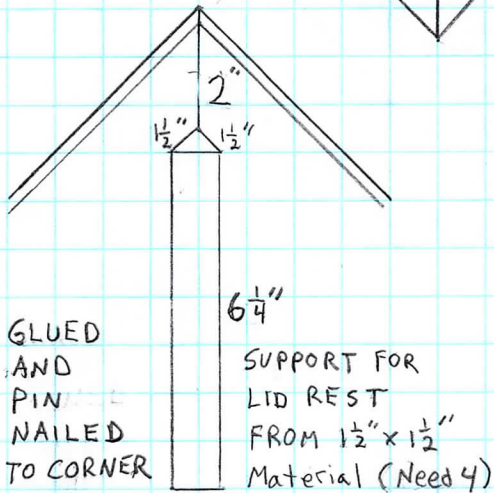 2"
1 1/2" 1 1/2"
6 1/4"
GLUED
AND
PIN
NAILED
TO CORNER
SUPPORT FOR
LID REST
FROM 1 1/2" x 1 1/2"
Material (Need 4)